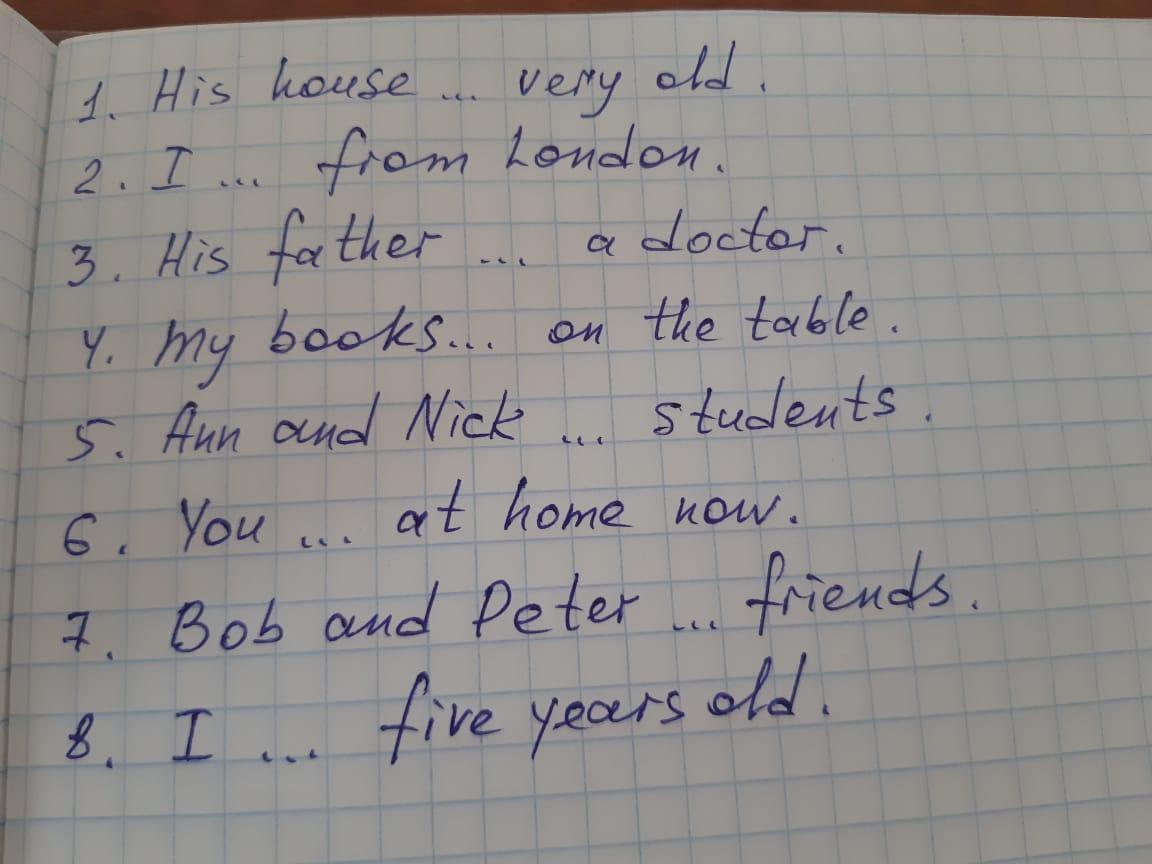 1. His house ... very old.
2. I ... from London.
3. His father ... a doctor.
4. My books... on the table.
5. Ann and Nick ... students.
6. You ... at home now.
7. Bob and Peter ... friends.
8. I ... five years old.